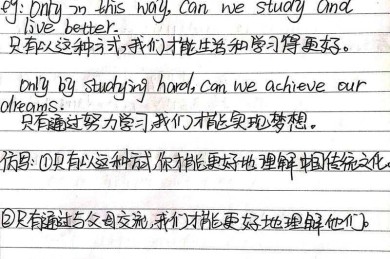 eg: Only in this way, can we study and
live better.
只有以这种方式,我们才能生活和学习得更好。
Only by studying hard, can we achieve our
dreams.
只有通过努力学习,我们才能实现梦想。
仿写:①只有以这种方式,你才能更好地理解中国传统文化。
②只有通过与父母交流,我们才能更好地理解他们。